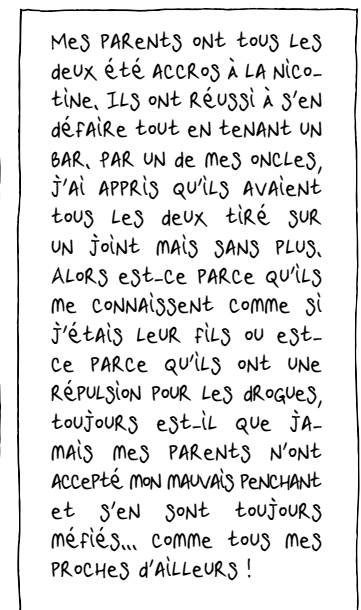 Mes parents ont tous les
deux été accros à la nico-
tine. Ils ont réussi à s'en
défaire tout en tenant un
bar. Par un de mes oncles,
j'ai appris qu'ils avaient
tous les deux tiré sur
un joint mais sans plus.
Alors est-ce parce qu'ils
me connaissent comme si
j'étais leur fils ou est-
ce parce qu'ils ont une
répulsion pour les drogues,
toujours est-il que ja-
mais mes parents n'ont
accepté mon mauvais penchant
et s'en sont toujours
méfiés... comme tous mes
proches d'ailleurs !